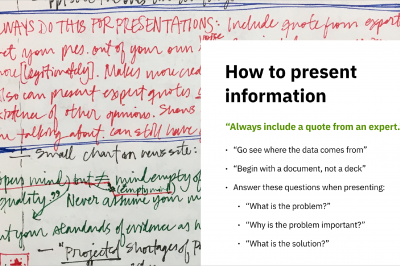 ALWAYS DO THIS FOR PRESENTATIONS: Include quote from expert
your pres. out of your own
more [legitimately]. Makes more cred
also can present expert quotes
existence of other opinions. Shows
talking about. can still have
Small chart on news site:
open mind, but ≠ mind empty of
(empty mind)
quality" Never assume your
your standards of evidence as
— "Projected shortages of
How to present
information
“Always include a quote from an expert.
• “Go see where the data comes from”
• “Begin with a document, not a deck”
• Answer these questions when presenting:
• “What is the problem?”
• “Why is the problem important?”
• “What is the solution?”